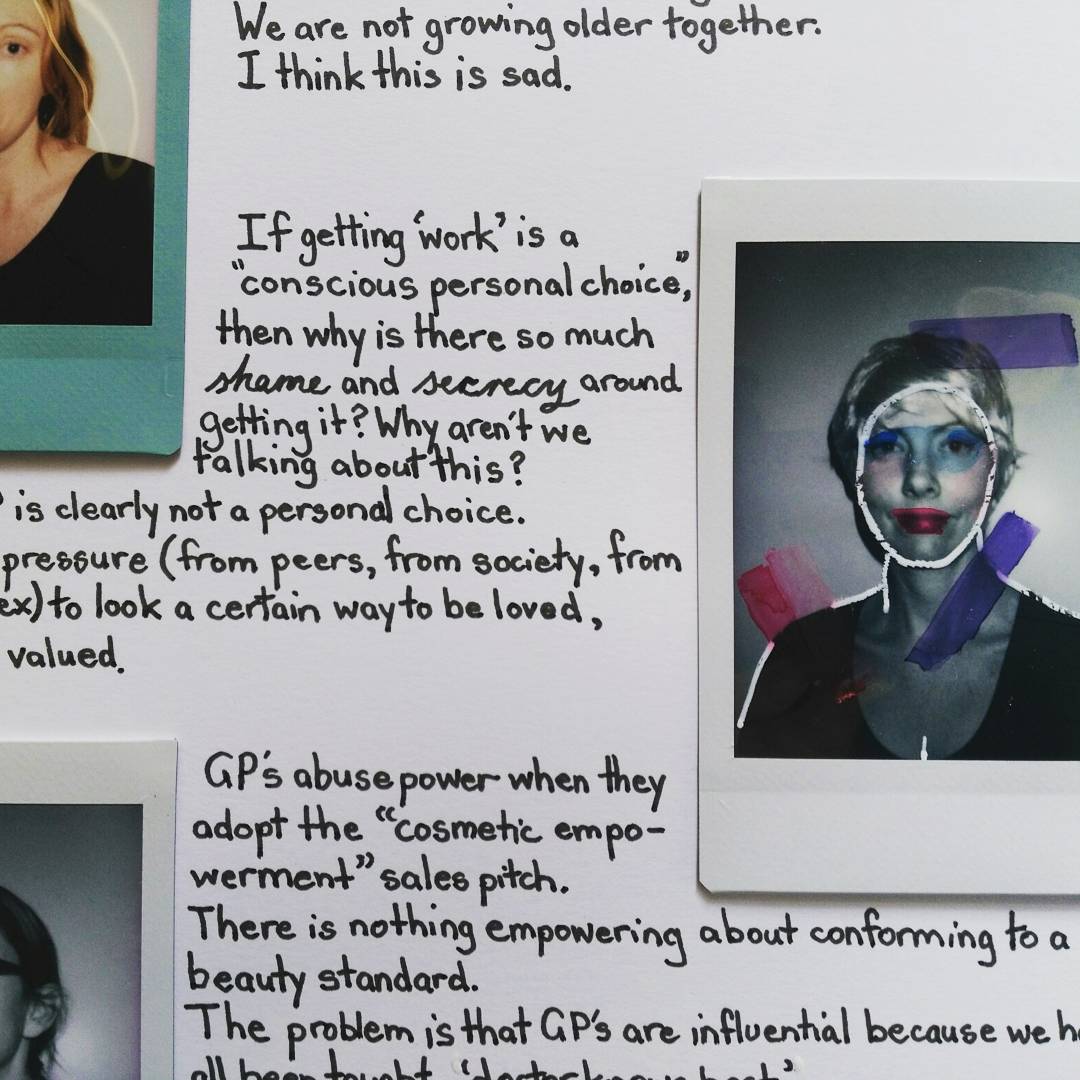 We are not growing older together.
I think this is sad.
If getting 'work' is a
"conscious personal choice,"
then why is there so much
shame and secrecy around
getting it? Why aren't we
talking about this?
is clearly not a personal choice.
pressure (from peers, from society, from
ex) to look a certain way to be loved,
valued.
GP's abuse power when they
adopt the "cosmetic empo-
werment" sales pitch.
There is nothing empowering about conforming to a
beauty standard.
The problem is that GP's are influential because we
all been taught